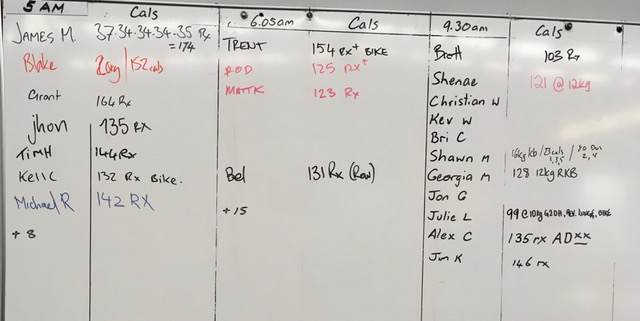 5 AM Cals
JAMES M. 37-34-34-34-35 Rx
=174
Blake 20kg/152cals
Grant 164 Rx
jhon 135 RX
TIM H 144 Rx
KELLC 132 Rx Bike.
Michael R 142 RX
+ 8
6.05am Cals
TRENT 154 RX+ BIKE
ROD 125 RX+
MATTK 123 Rx
Bel 131 Rx (Row)
+ 15
9.30am Cals
Brett 103 Rx
Shenae 121 @ 12kg
Christian W
Kev W
Bri C
Shawn M 16kg kb / 23 cals 1,3,5 / 20 2,4
Georgia M 128 12kg RKB
Jon G
Julie L 99 @ 10kg G2OH, LUNGE, BIKE
Alex C 135 rx AD xx
Jim K 146 rx